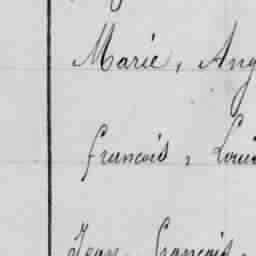 Marie, Ang
francois, Loui
Jean, francois,